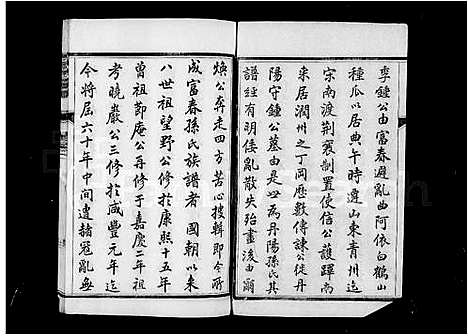 季鍾公由富春避亂曲阿依白鶴山
種瓜以居典午時遷山東青州迄
宋南渡荆襄制置使信公護蹕南
來居潤州之丁岡歷數傳諫公徙丹
陽守鍾公墓由是而丹陽孫氏其
譜經有明倭亂散失殆盡後由爾
煥公奔走四方苦心搜輯即今所
成富春孫氏族譜者 國朝以來
八世祖望野公修於康熙十五年
曾祖節庵公再修于嘉慶二年祖
考曉巖公三修於咸豐元年迄
今將屆六十年中間遭赭寇亂每